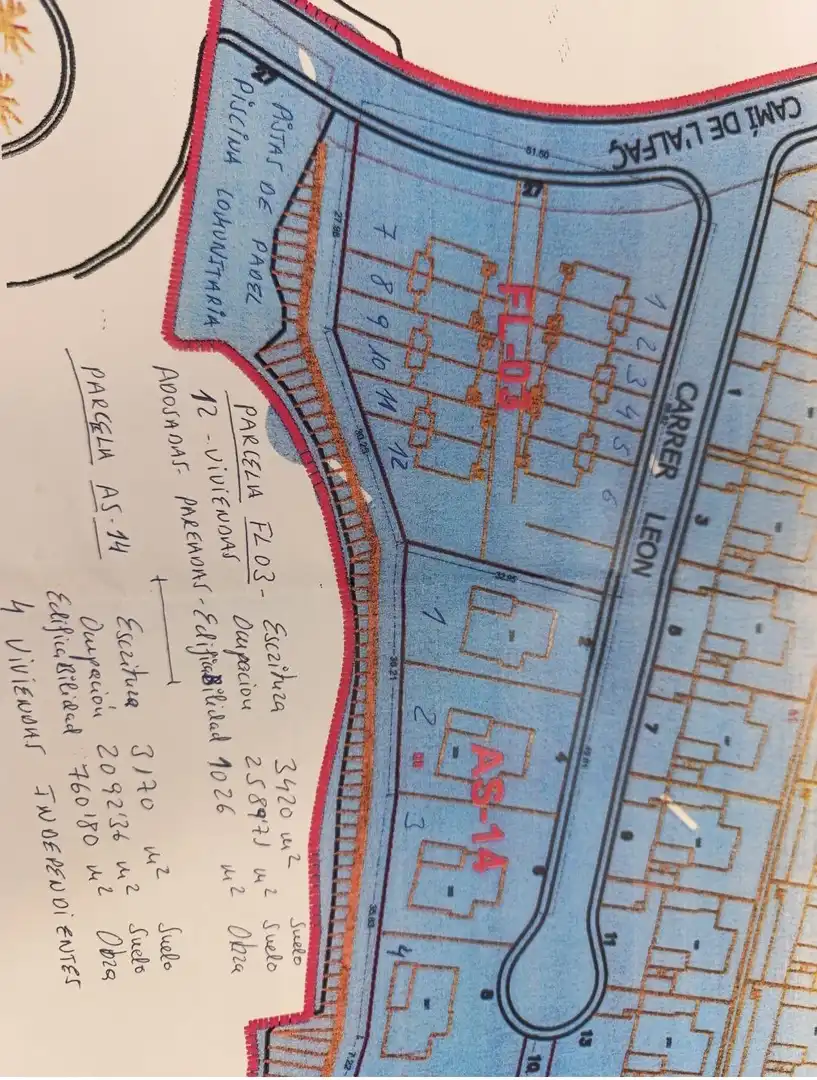 CAMÍ DE L'ALFAÇ
CARRER LEON
FL-03
AS-14
PISTAS DE PADEL
PISCINA COMUNITARIA
27
27
51.60
27.98
1
2
3
4
5
6
7
8
9
10
11
12
1
2
3
4
2
4
6
8
10
1
3
7
9
11
13
36.21
35.63
7.22
PARCELA FL03-
Escritura 3420 m² Suelo
12 - VIVIENDAS
Ocupacion 2589'71 m² Suelo
ADOSADAS- PAREADAS- Edificabilidad 1026 m² Obra
PARCELA AS-14
Escritura 3170 m² Suelo
Ocupación 2092'36 m² Suelo
Edificabilidad 760'80 m² Obra
4 VIVIENDAS INDEPENDIENTES